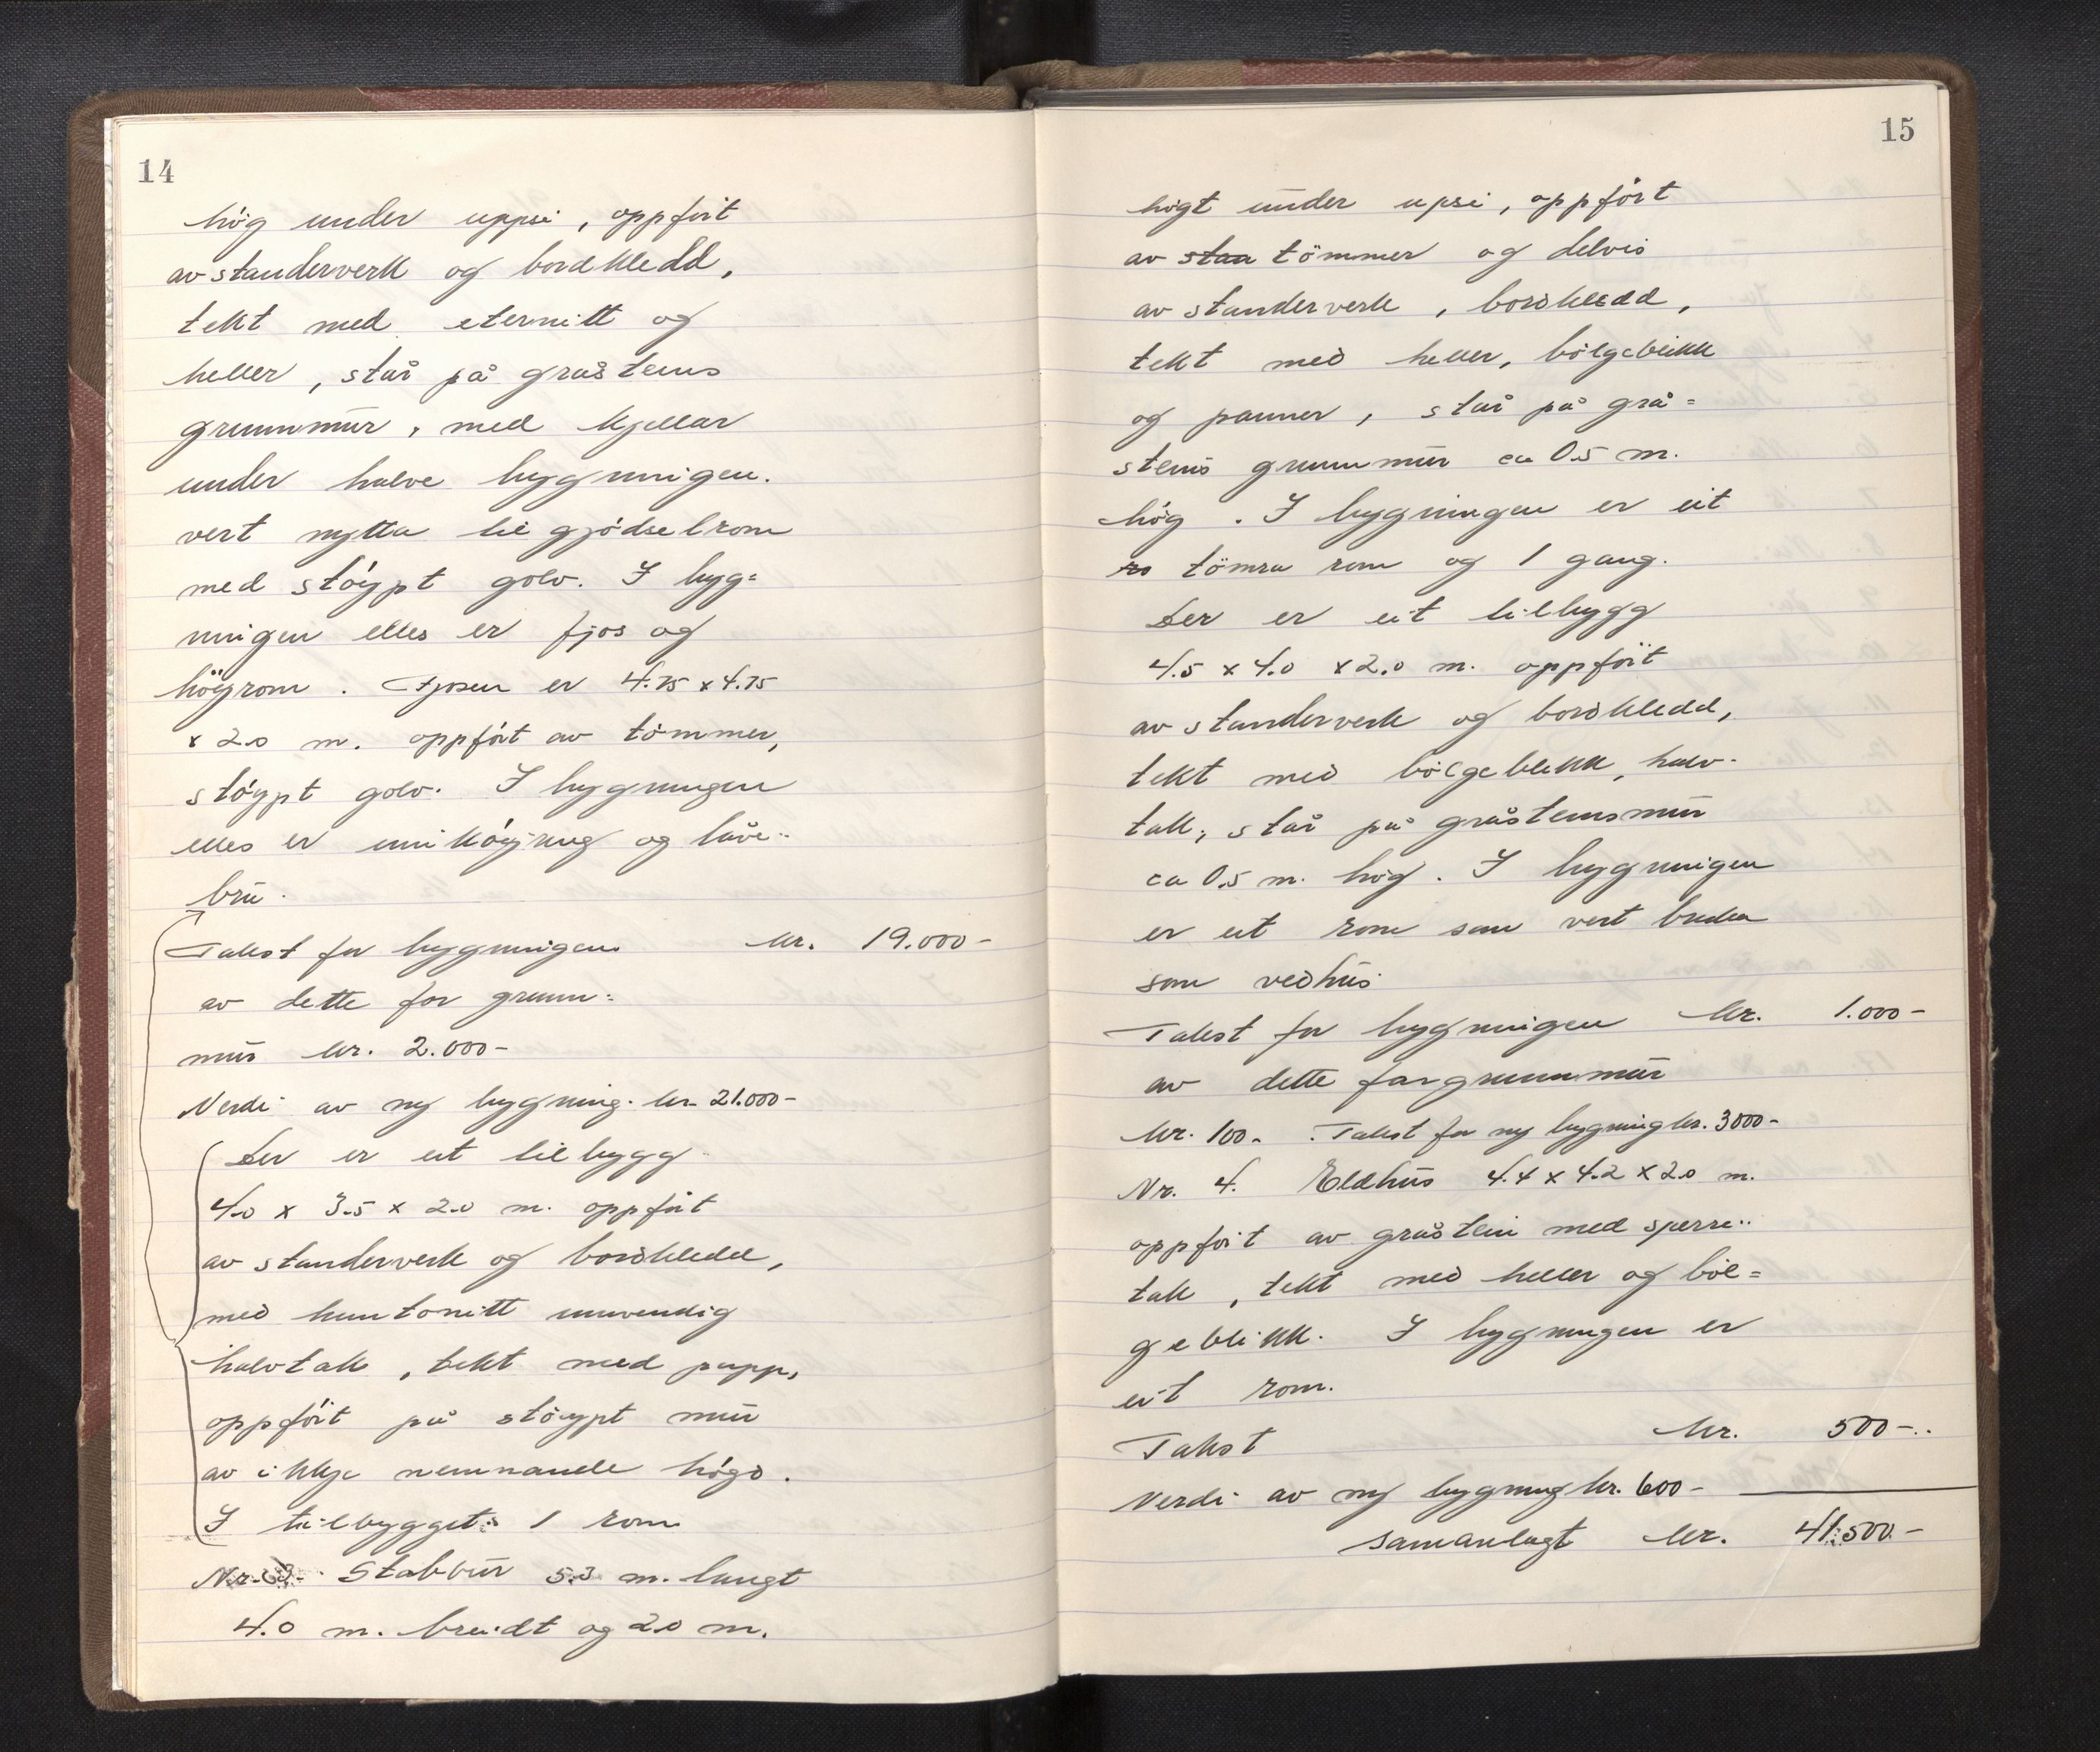 14
høg under uppsi, oppført
av standerverk og bordkledd,
tekt med eternitt og
heller, står på gråsteins
grunnmur, med kjellar
under halve bygningen.
vert nytta til gjødselrom
med støypt golv. I byg=
ningen elles er fjos og
høyrom. Fjosen er 4.75 x 4.75
x 2.0 m. oppført av tømmer,
støypt golv. I bygningen
elles er innkøyring og låve-
bru.
Takst for bygningen kr. 19.000-
av dette for grunn=
mur kr. 2.000-
Verdi av ny bygning. kr. 21.000-
Der er eit tilbygg
4.0 x 3.5 x 2.0 m. oppført
av standerverk og bordkledd,
med huntonitt innvendig
halvtak, tekt med papp,
oppført på støypt mur
av ikkje nemnande høgd.
I tilbygget: 1 rom
Nr. 3. Stabbur 5.3 m. langt
4.0 m. breidt og 2.0 m.
15
høgt under upsi, oppført
av staa tömmer og delvis
av standerverk, bordkledd,
tekt med heller, bølgeblikk
og panner, står på grå=
steins grunnmur ca 0.5 m.
høg. I bygningen er eit
ro tömra rom og 1 gang.
Der er eit tilbygg
4.5 x 4.0 x 2.0 m. oppført
av standerverk og bordkledd,
tekt med bølgeblikk, halv-
tak, står på gråsteinsmur
ca 0.5 m. høg. I bygningen
er eit rom som vert bruka
som vedhus.
Takst for bygningen kr. 1.000-
av dette for grunnmur
kr. 100-. Takst for ny bygning kr. 3000-
Nr. 4. Eldhus 4.4 x 4.2 x 2.0 m.
oppført av gråstein med sperre-
tak, tekt med heller og bøl=
geblikk. I bygningen er
eit rom.
Takst kr. 500-
Verdi av ny bygning kr. 600-
samanlagt kr. 41.500.-